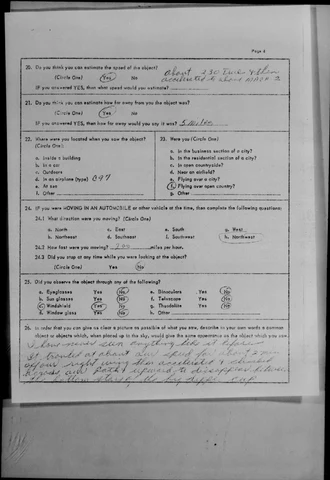 Page 4
20. Do you think you can estimate the speed of the object?
(Circle One) Yes No
About 250 then
accelerated to above Mach 2
IF you answered YES, then what speed would you estimate?
21. Do you think you can estimate how far away from you the object was?
(Circle One) Yes No
IF you answered YES, then how far away would you say it was? 5 miles
22. Where were you located when you saw the object?
(Circle One)
a. Inside a building
b. In a car
c. Outdoors
d. In an airplane (type) C97
e. At sea
f. Other
23. Were you (Circle One)
a. In the business section of a city?
b. In the residential section of a city?
c. In open countryside?
d. Near an airfield?
e. Flying over a city?
f. Flying over open country?
g. Other
24. IF you were MOVING IN AN AUTOMOBILE or other vehicle at the time, then complete the following questions:
24.1 What direction were you moving? (Circle One)
a. North c. East e. South g. West
b. Northeast d. Southeast f. Southwest h. Northwest
24.2 How fast were you moving? miles per hour.
24.3 Did you stop at any time while you were looking at the object?
(Circle One) Yes No
25. Did you observe the object through any of the following?
a. Eyeglasses Yes No e. Binoculars Yes No
b. Sun glasses Yes No f. Telescope Yes No
c. Windshield Yes No g. Theodolite Yes No
d. Window glass Yes No h. Other
26. In order that you can give us as clear a picture as possible of what you saw, describe in your own words a common
object or objects which, when placed up in the sky, would give the same appearance as the object which you saw.
I have never seen anything like it before
It traveled at about our speed for about 2 min
off our right wing then accelerated & climbed
upward to disappear between
the stars of the big dipper cup